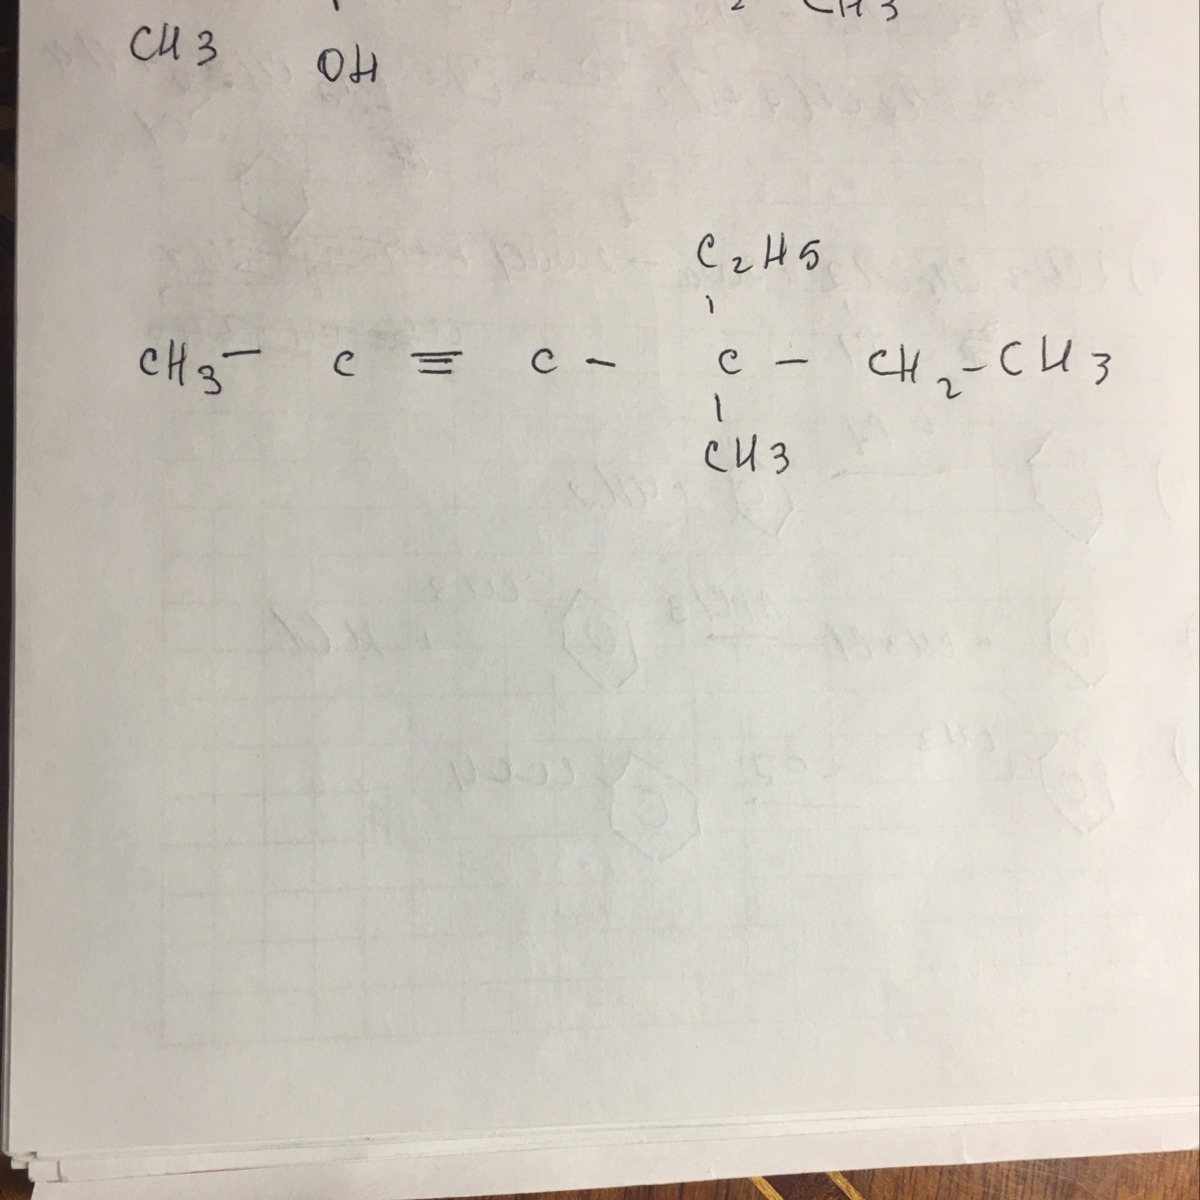 CH3
CH3 OH
C2H5
CH3 - C ≡ C - C - CH2 - CH3
CH3